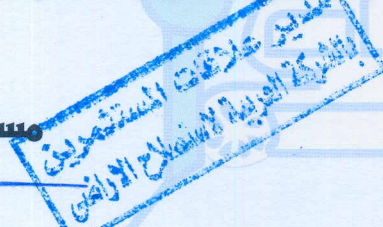 مدير علاقات المستثمرين
بالشركة العربية لاستصلاح الاراضى
مس